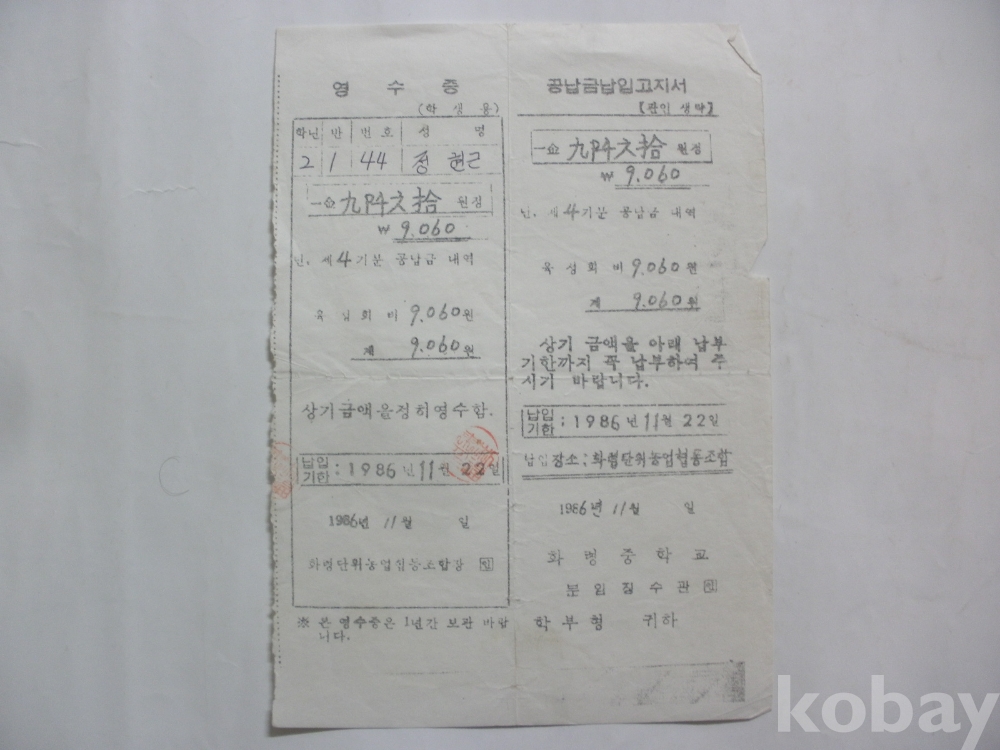 영 수 증
(학 생 용)
학년 반 번호 성 명
2 1 44 정 현근
一金 九阡六拾 원정
₩ 9.060
년. 제4기분 공납금 내역
육 성 회 비 9.060원
계 9.060원
상기금액을정히영수함.
납입기한 : 1986년 11월 22일
1986년 11월 일
화령단위농업협동조합장 인
※ 본 영수증은 1년간 보관 바랍
니다.
공납금납입고지서
【관인 생략】
一金 九阡六拾 원정
₩ 9.060
년. 제4기분 공납금 내역
육 성 회 비 9.060원
계 9.060원
상기 금액을 아래 납부
기한까지 꼭 납부하여 주
시기 바랍니다.
납입기한 : 1986년 11월 22일
납입장소 : 화령단위농업협동조합
1986년 11월 일
화 령 중 학 교
분 임 징 수 관 인
학 부 형 귀하
kobay